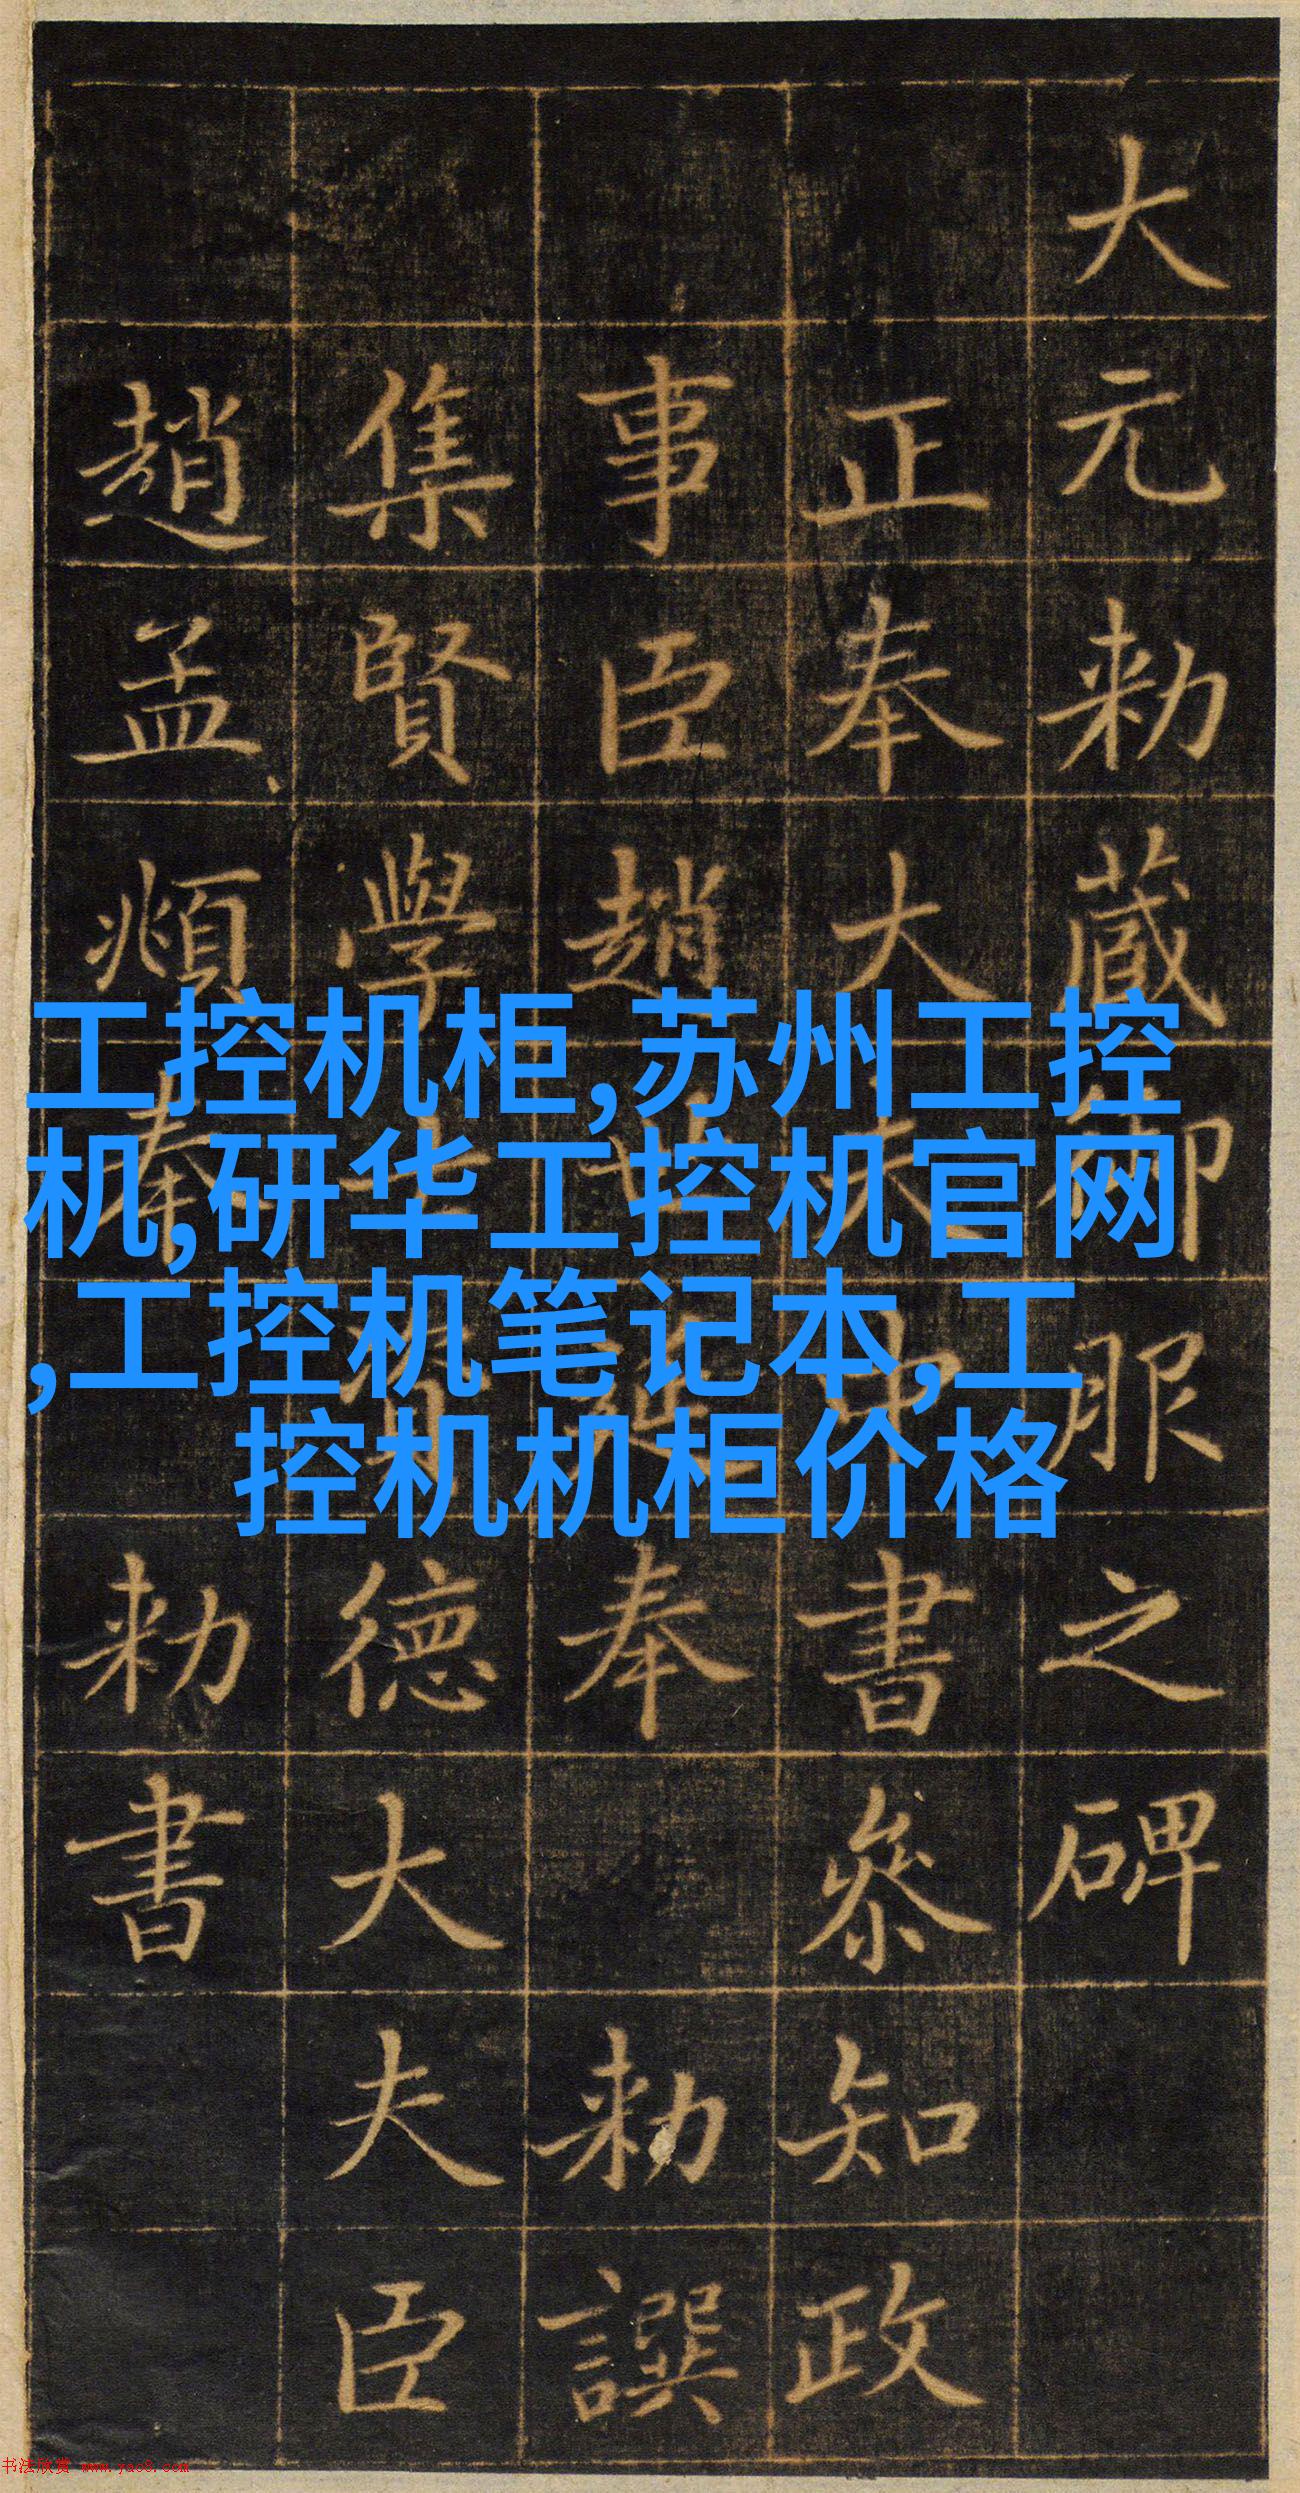 大元勅藏御服之碑
正奉大夫中書叅知政
事臣趙世延奉勅譔
集賢學士資德大夫臣
趙孟頫奉勅書
工控机柜,苏州工控
机,研华工控机官网
,工控机笔记本,工
控机机柜价格
书法欣赏 www.yac8.com